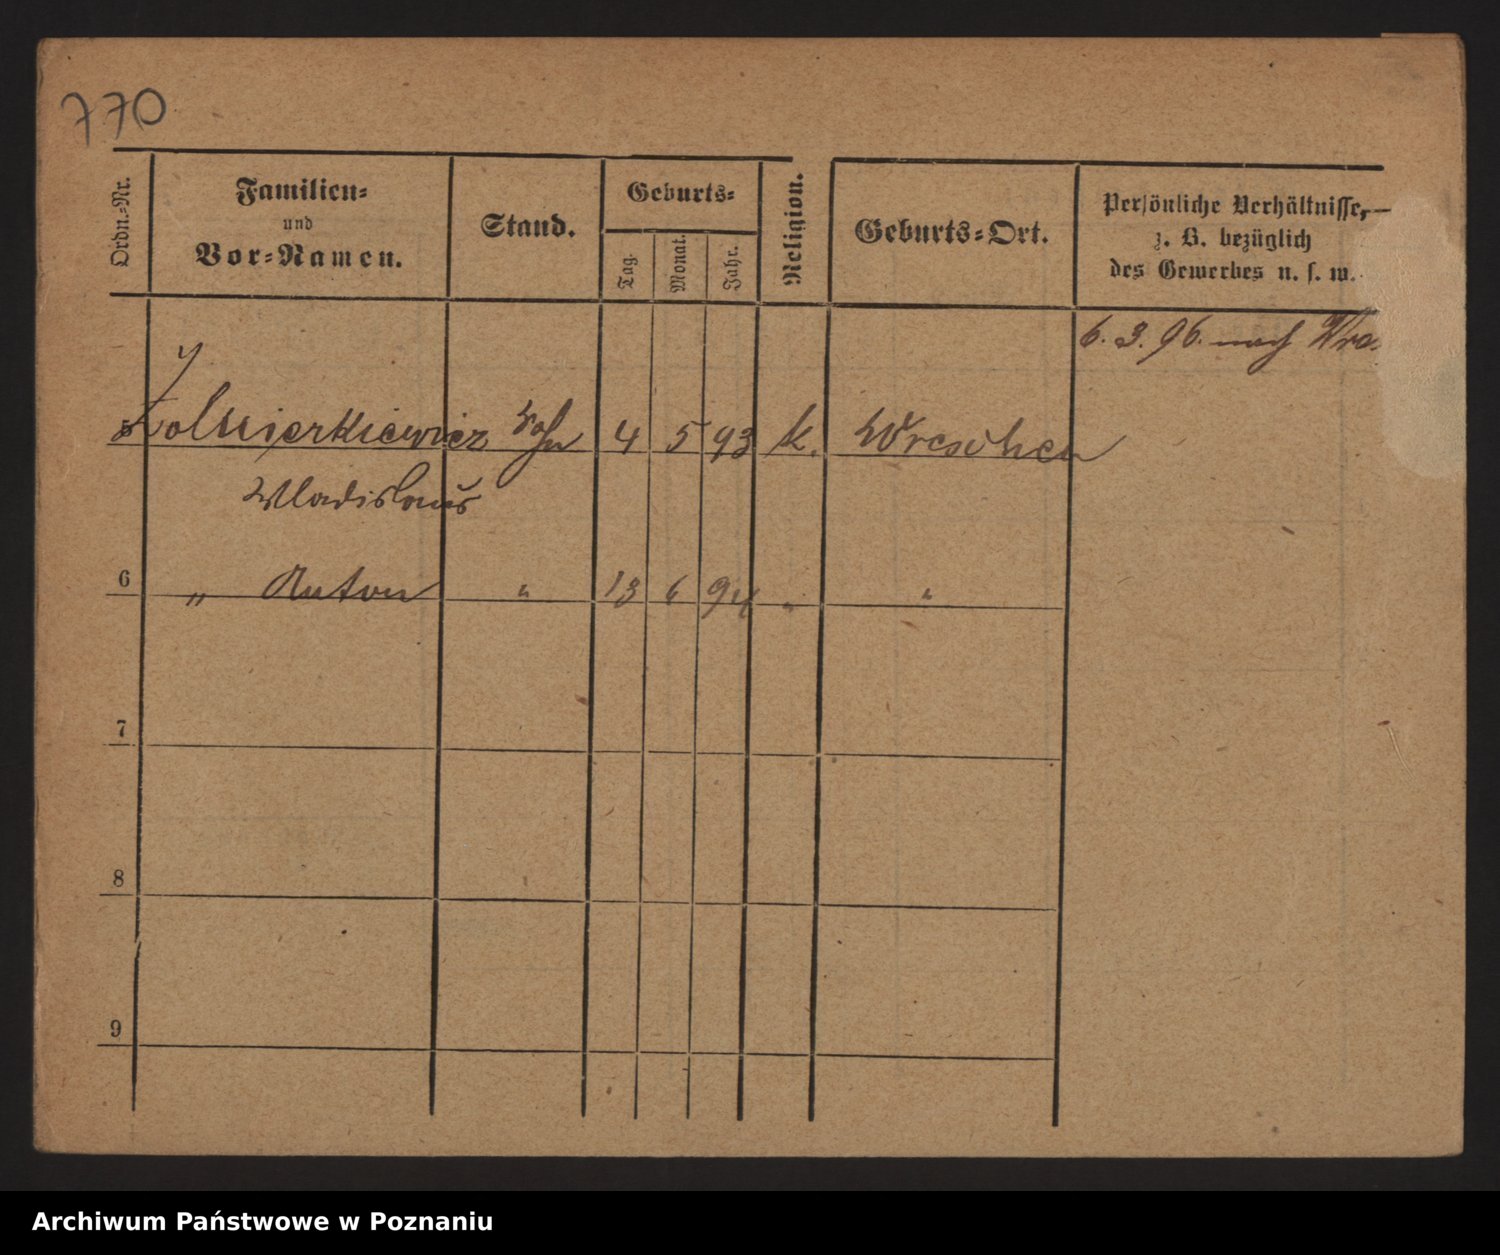 770
Ordn.-Nr.
Familien-
und
Vor-Namen.
Stand.
Geburts-
Tag.
Monat.
Jahr.
Religion.
Geburts-Ort.
Persönliche Verhältnisse,
z. B. bezüglich
des Gewerbes u. s. w.
6. 3. 96. nach Wre
5 Zolnierkiewicz Sohn 4 5 93 k. Wreschen
Wladislaus
6 " Anton " 13 6 94 " "
7
8
9
Archiwum Państwowe w Poznaniu